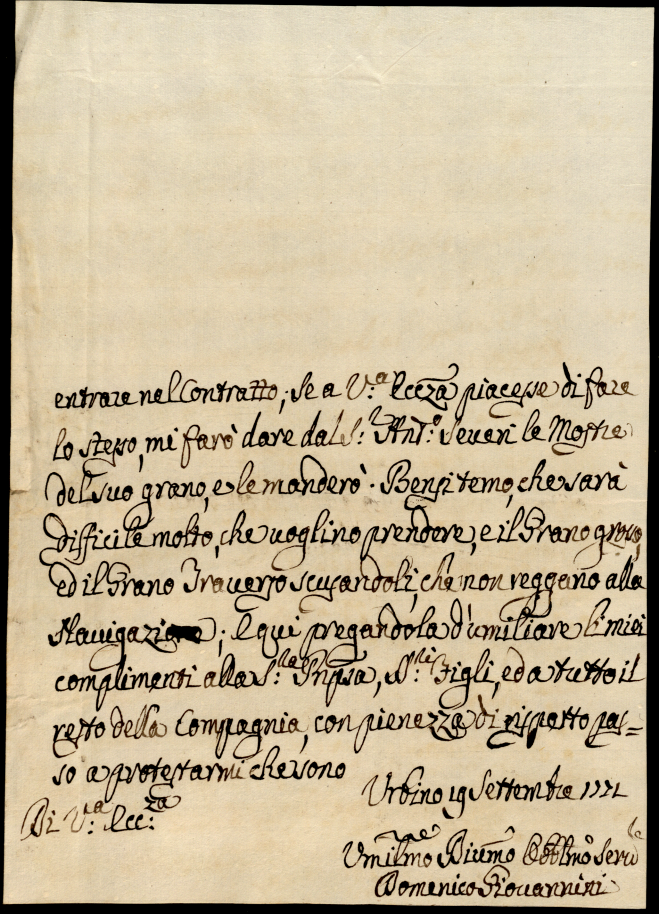 entrare nel Contratto; Se a V.ª Eccza piacesse di fare
lo stesso, mi farò dare dal S.r Ant.o Severi le Mostre
del suo grano, e le manderò. Bensi temo, che sarà
difficile molto, che voglino prendere, e il Grano grosso,
ed il Grano Traverso scusandoli, che non reggano alla
Navigazione; E qui pregandola d'umiliare li miei
complimenti alla S.ra Pnpsa, S.ri Figli, ed a tutto il
resto della Compagnia, con pienezza di rispetto pas=
so a protestarmi che sono
Urbino 19 Settembre 1771
Di V.ª Ecc.za
Umilmo Divmo Obblmo Serv.e
Domenico Giovannini